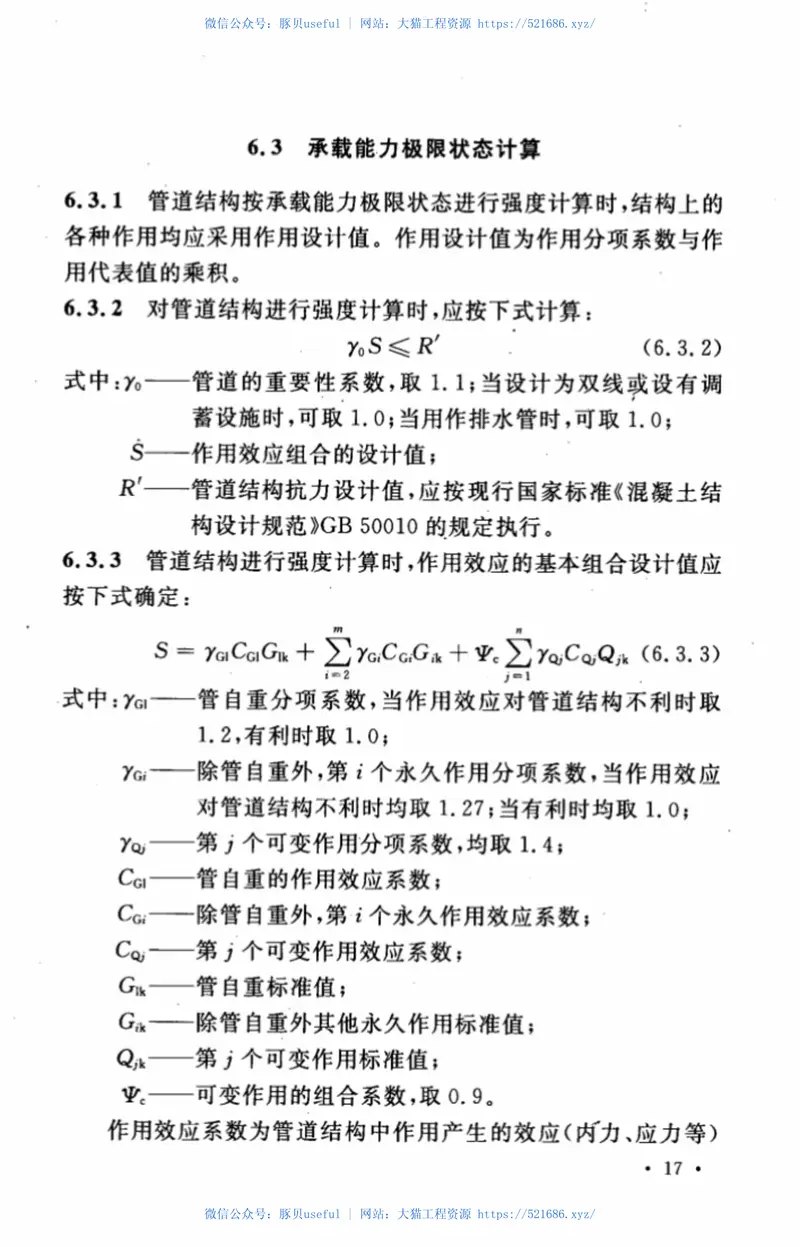 微信公众号：豚贝useful | 网站：大猫工程资源 https://521686.xyz/
6.3 承载能力极限状态计算
6.3.1 管道结构按承载能力极限状态进行强度计算时,结构上的
各种作用均应采用作用设计值。作用设计值为作用分项系数与作
用代表值的乘积。
6.3.2 对管道结构进行强度计算时,应按下式计算：
γ₀S≤R′ (6.3.2)
式中:γ₀——管道的重要性系数,取 1.1;当设计为双线或设有调
蓄设施时,可取 1.0;当用作排水管时,可取 1.0;
S——作用效应组合的设计值;
R′——管道结构抗力设计值,应按现行国家标准《混凝土结
构设计规范》GB 50010 的规定执行。
6.3.3 管道结构进行强度计算时,作用效应的基本组合设计值应
按下式确定：
S = γG1CG1G1k + ∑(i=2→m) γGiCGiGik + Ψc ∑(j=1→n) γQjCQjQjk (6.3.3)
式中:γG1——管自重分项系数,当作用效应对管道结构不利时取
1.2,有利时取 1.0;
γGi——除管自重外,第 i 个永久作用分项系数,当作用效应
对管道结构不利时均取 1.27;当有利时均取 1.0;
γQj——第 j 个可变作用分项系数,均取 1.4;
CG1——管自重的作用效应系数;
CGi——除管自重外,第 i 个永久作用效应系数;
CQj——第 j 个可变作用效应系数;
G1k——管自重标准值;
Gik——除管自重外其他永久作用标准值;
Qjk——第 j 个可变作用标准值;
Ψc——可变作用的组合系数,取 0.9。
作用效应系数为管道结构中作用产生的效应(内力、应力等)
• 17 •
微信公众号：豚贝useful | 网站：大猫工程资源 https://521686.xyz/